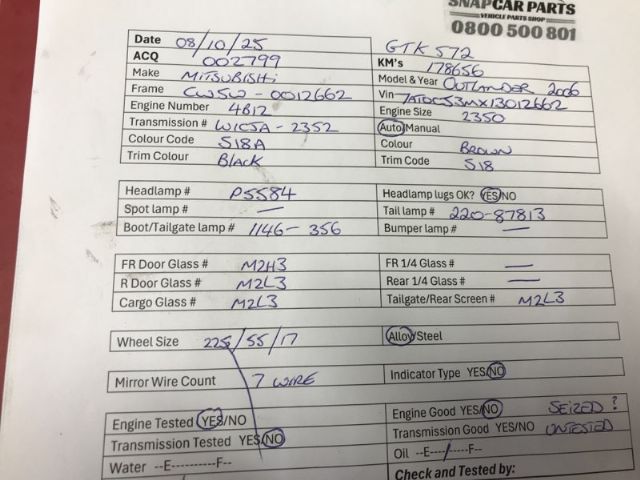 SNAPCAR PARTS
VEHICLE PARTS SHOP
0800 500 801
Date 08/10/25 GTK572
ACQ 002799 KM's 178656
Make MITSUBISHI Model & Year OUTLANDER 2006
Frame CW5W-0012662 Vin 7AT0C53MX13012662
Engine Number 4B12 Engine Size 2350
Transmission # W1CJA-2352 Auto/Manual
Colour Code S18A Colour BROWN
Trim Colour BLACK Trim Code S18
Headlamp # P5584 Headlamp lugs OK? YES/NO
Spot lamp # — Tail lamp # 220-87813
Boot/Tailgate lamp # 1146-356 Bumper lamp # —
FR Door Glass # M2H3 FR 1/4 Glass # —
R Door Glass # M2L3 Rear 1/4 Glass # —
Cargo Glass # M2L3 Tailgate/Rear Screen # M2L3
Wheel Size 225/55/17 Alloy/Steel
Mirror Wire Count 7 WIRE Indicator Type YES/NO
Engine Tested YES/NO Engine Good YES/NO SEIZED?
Transmission Tested YES/NO Transmission Good YES/NO UNTESTED
Water --E----------F-- Oil --E----/-----F--
Check and Tested by: